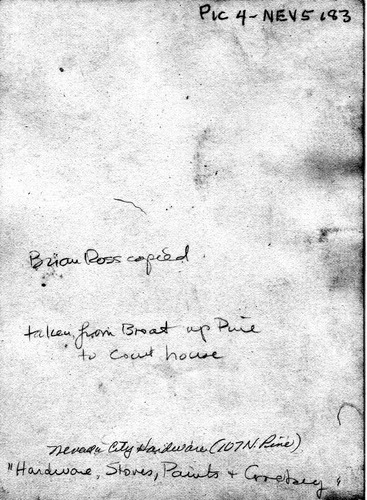 PIC 4-NEV5 183
Brian Ross copied
taken from Broad up Pine
to Court house
Nevada City Hardware (107 N. Pine)
"Hardware, Stoves, Paints &